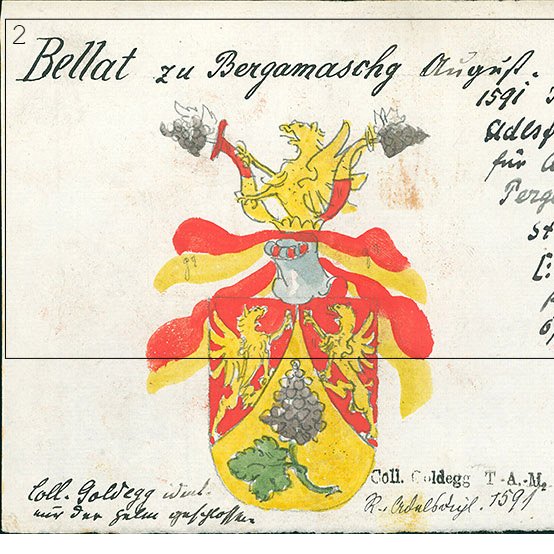 2
Bellat zu Bergamaschg August.
1591
Adels
für
Perg
st
Coll. Goldegg ident.
nur der Helm geschlossen
Coll. Goldegg T.-A.-M.
R. Adelsbrief. 1591